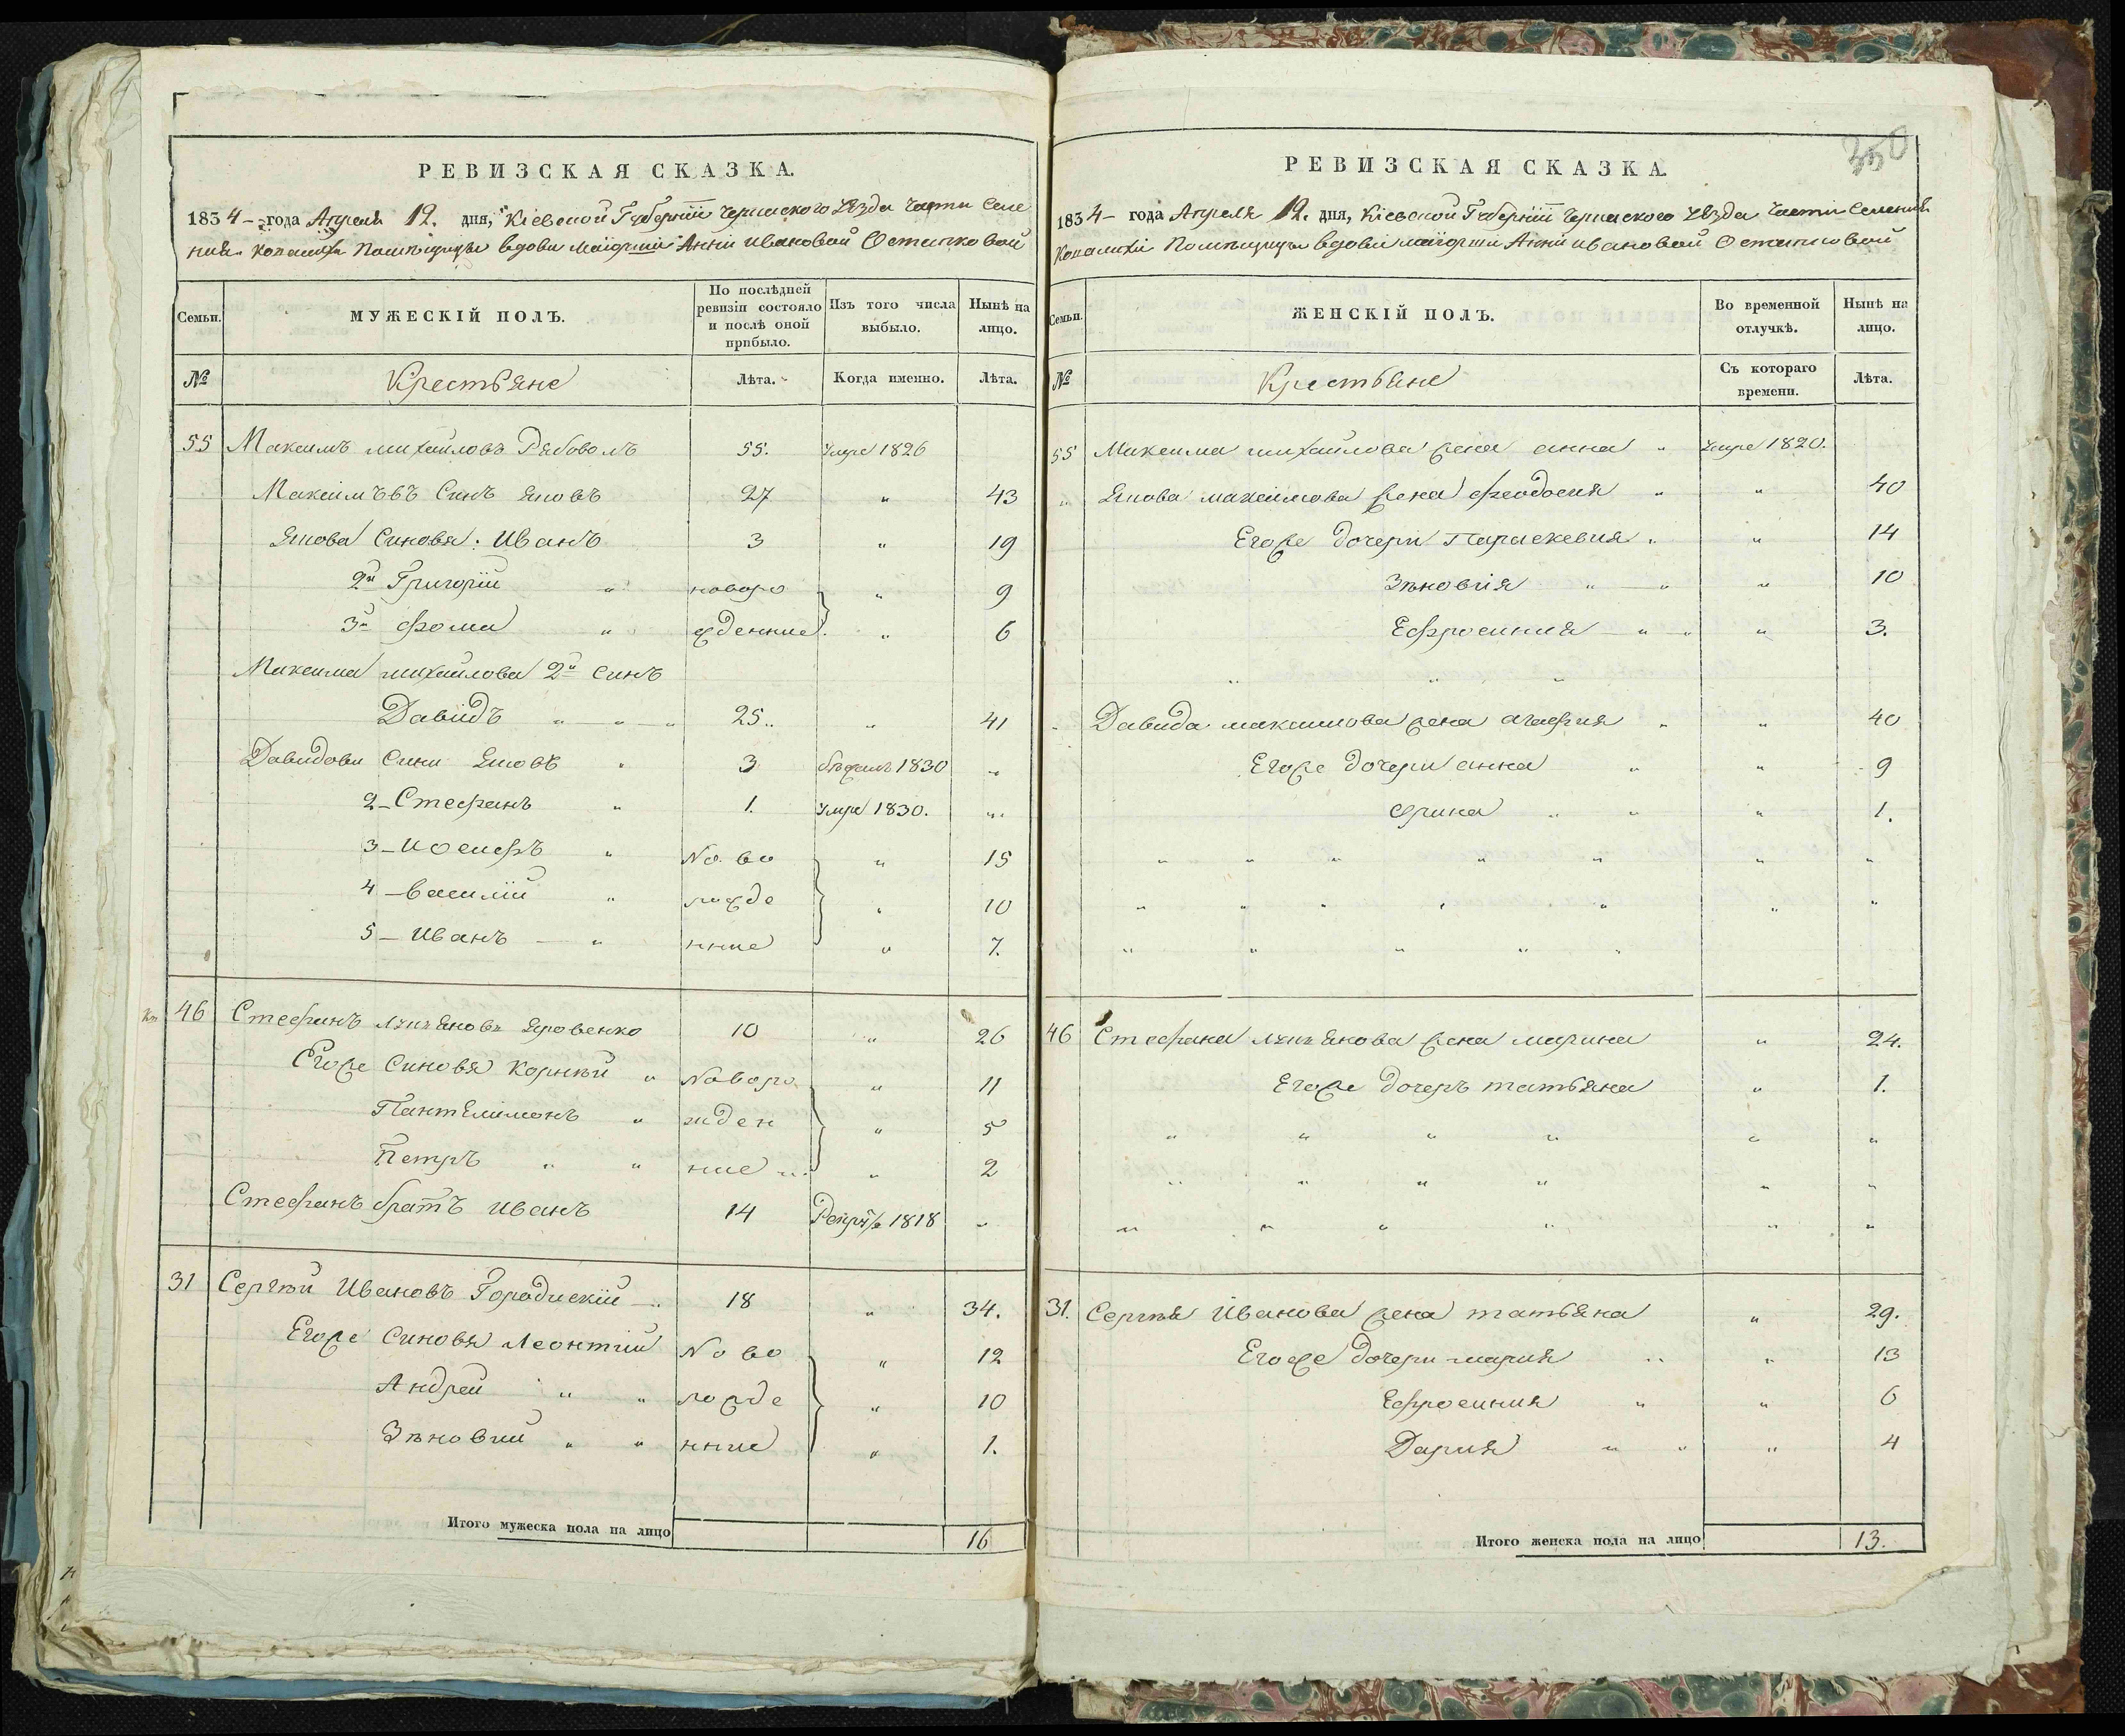 РЕВИЗСКАЯ СКАЗКА.
1834 года Апреля 12. дня, Кіевской Губерніи Черкаского Уѣзда Части Селе
нія Копаихи Помѣщицы вдовы маіорши Анни Ивановой Остапковой
Семьи.
МУЖЕСКІЙ ПОЛЪ.
По послѣдней ревизіи состояло и послѣ оной прибыло.
Изъ того числа выбыло.
Нынѣ на лицо.
№ Крестьяне Лѣта. Когда именно. Лѣта.
55 Максимъ михайловъ Рябоволъ 55. Умре 1826
Максимъвъ Синъ Яковъ 27 " 43
Якова Синовя: Иванъ 3 " 19
2й Григорій " новоро " 9
3й Фома " жденние " 6
Максима михайлова 2й синъ
Давидъ " " " 25 " 41
Давидови Сини Яковъ " 3 бѣжалъ 1830 "
2 Стефанъ " 1. Умре 1830. "
3 Иосифъ " Ново " 15
4 василій " рожде " 10
5 Иванъ " нние " 7.
46 Стефанъ лукъяновъ Яровенко 10 " 26
Егоже Синовя Корнѣй " Новоро " 11
Пантелимонъ " жден " 5
Петръ " " ние " 2
Стефанъ братъ Иванъ 14 Рекрут 1818 "
31 Сергѣй Ивановъ Городискій 18 " 34.
Егоже Синовя Леонтій Ново " 12
Андрей " " рожде " 10
Зѣновій " " нние " 1.
Итого мужеска пола на лицо 16
350
РЕВИЗСКАЯ СКАЗКА.
1834 года Апреля 12. дня, Кіевской Губерніи Черкаского Уѣзда Части Селенія
Копаихи Помѣщицы вдовы маіорши Анни Ивановой Остапковой
Семьи.
ЖЕНСКІЙ ПОЛЪ.
Во временной отлучкѣ.
Нынѣ на лицо.
№ Крестьяне Съ котораго времени. Лѣта.
55 Максима михайлова жена анна " Умре 1820.
" Якова максимова жена феодосия " " 40
Егоже дочери Параскевия " " 14
Зѣновія " " " 10
Ефросиния " " " 3.
" " "
Давида максимова жена агафия " " 40
Егоже дочери анна " " 9
Ирина " " " 1.
" " " " " " "
" " " " " " "
" " " " "
46 Стефана лукъянова жена марина " 24.
Егоже дочеръ татьяна " 1.
" " " " " "
" " " " " "
" " " " " "
31. Сергѣя Иванова жена татьяна " 29.
Егоже дочери мария " " 13
Ефросиния " " 6
Дария " " " 4
Итого женска пола на лицо 13.